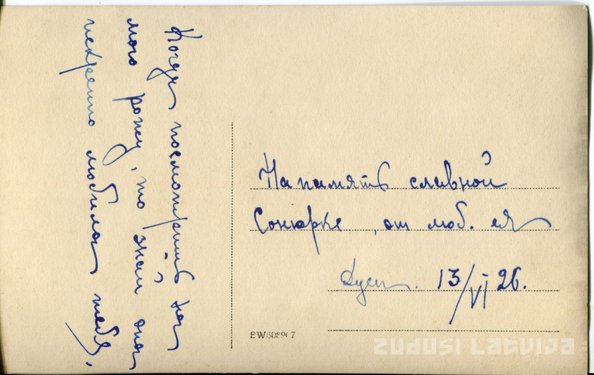 Когда посмотришь на
мою рожу, то знай она
искренно любила тебя.
На память славной
Сонюрке, от люб. ея
Дуси. 13/VI 26.
BW
ZUDUSI LATVIJA